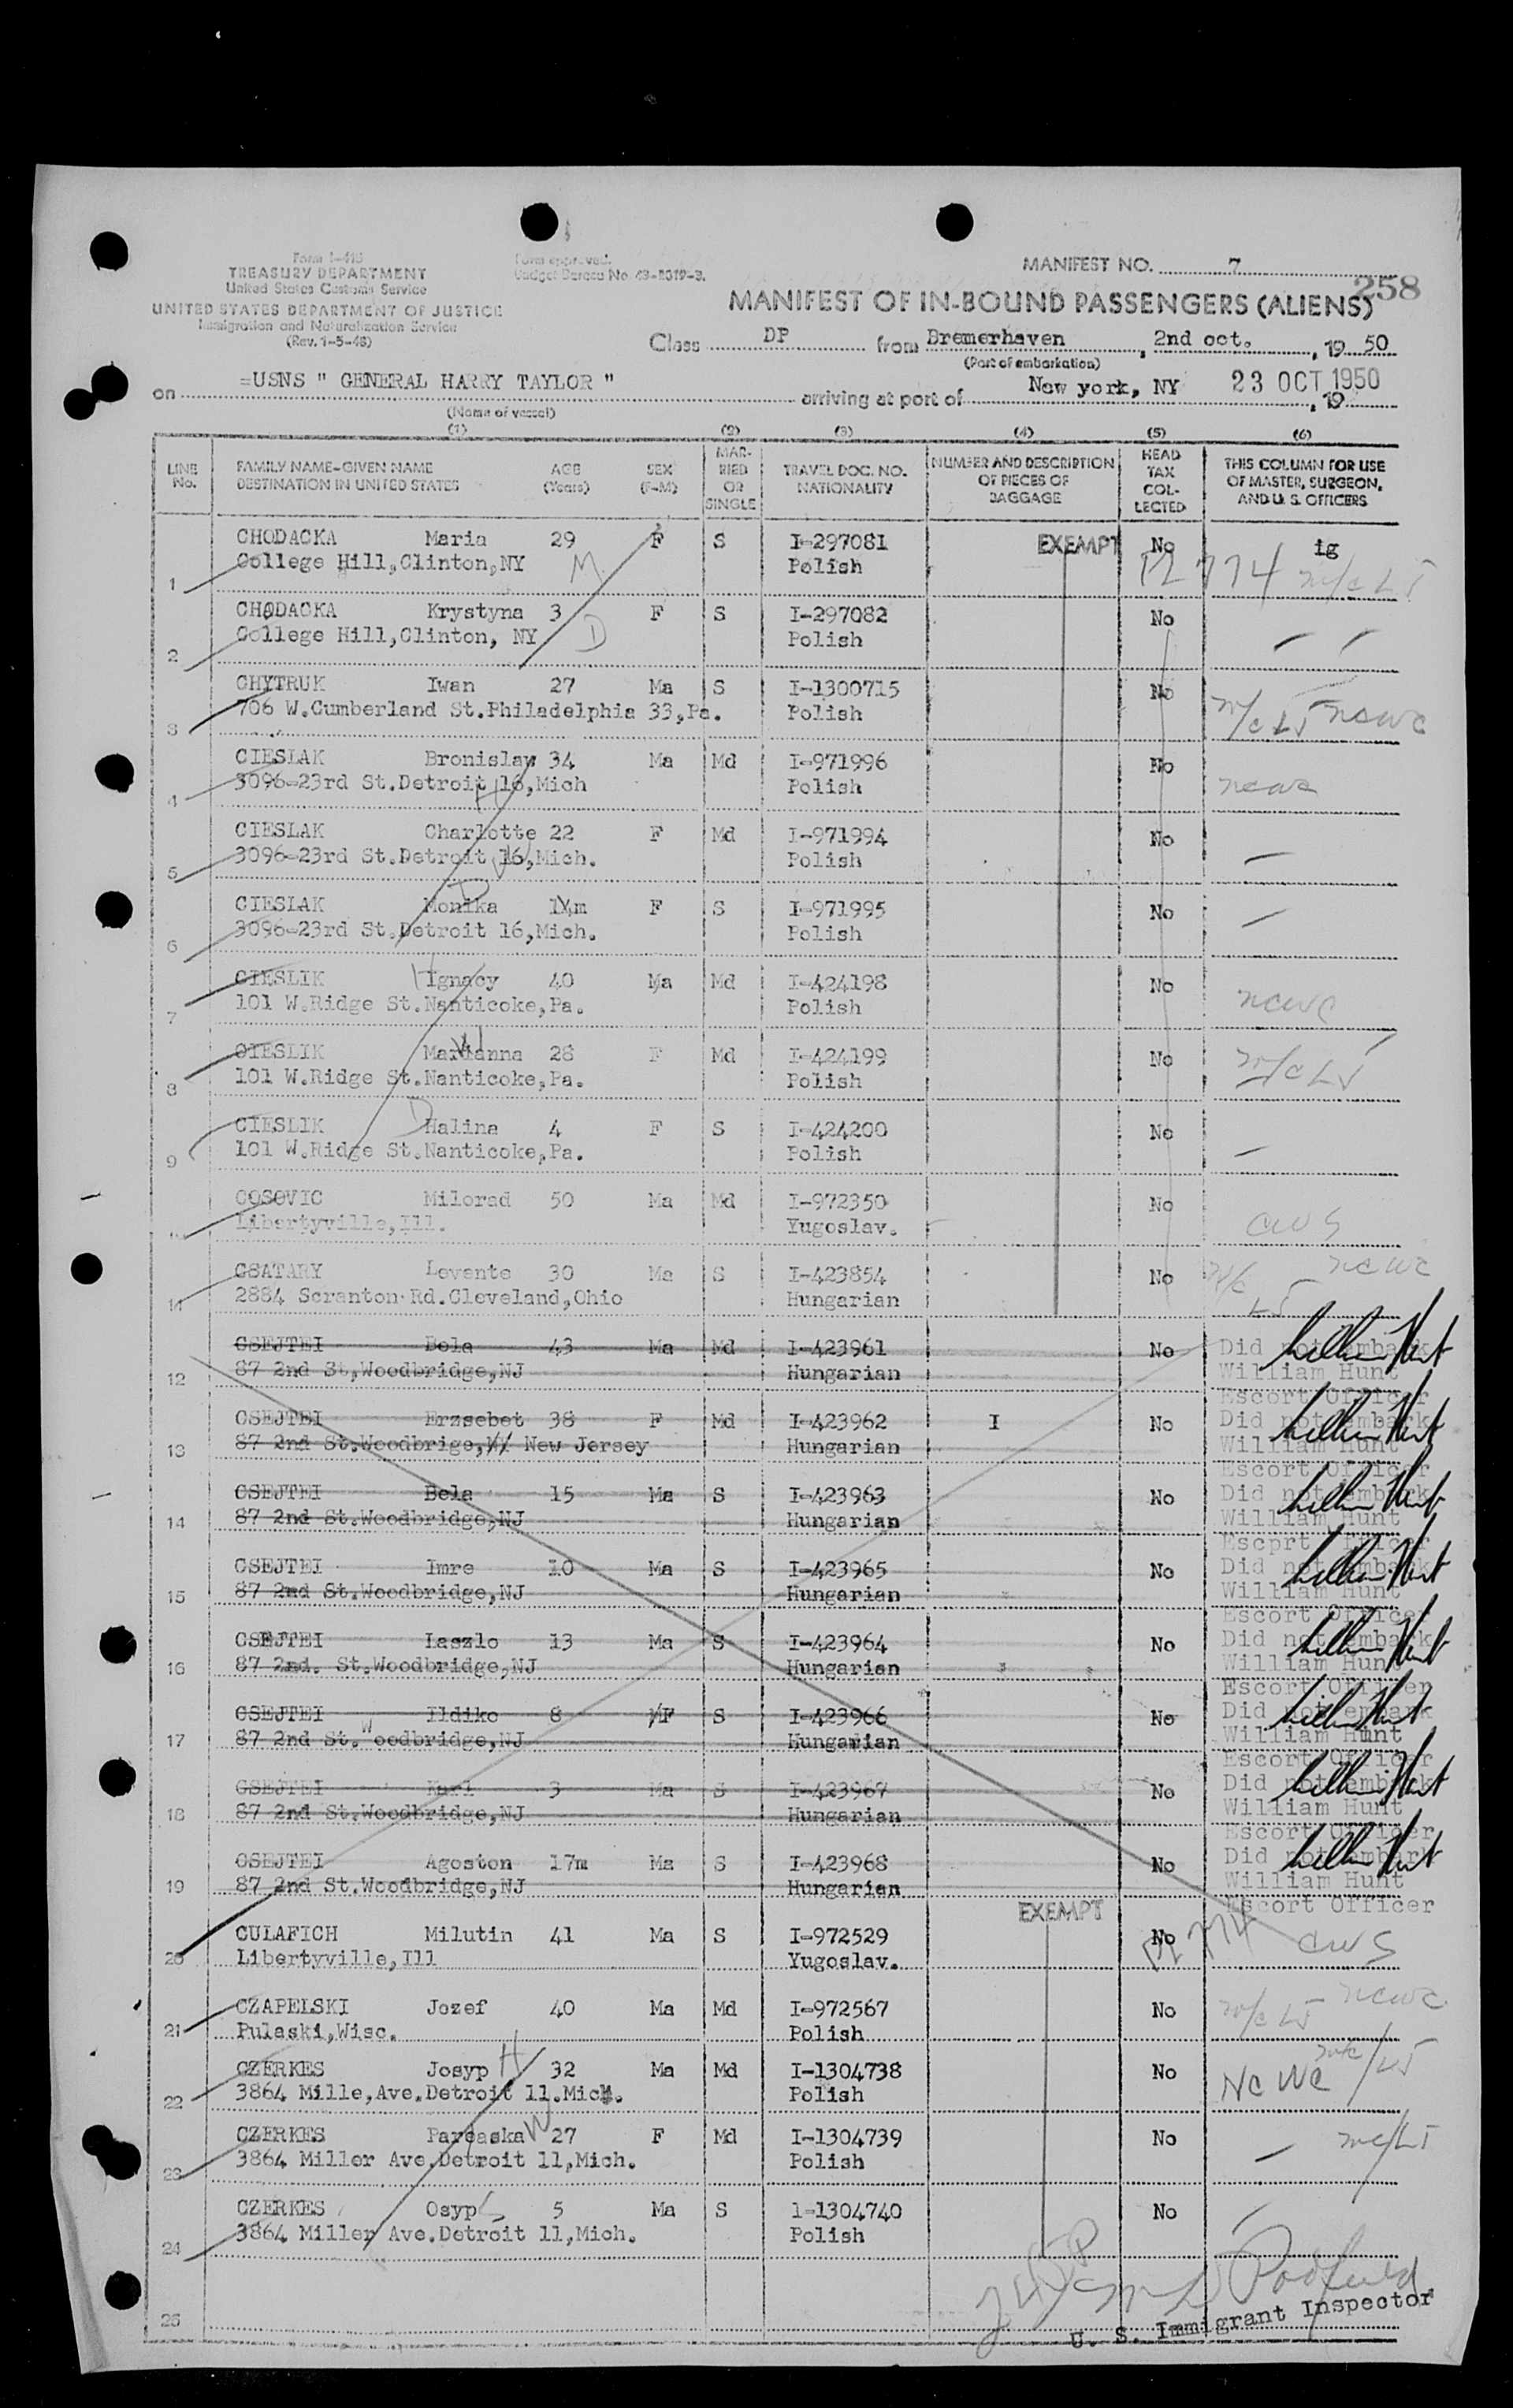 Form I-418
TREASURY DEPARTMENT
United States Customs Service
UNITED STATES DEPARTMENT OF JUSTICE
Immigration and Naturalization Service
(Rev. 1-5-48)
Form approved.
Budget Bureau No. 43-R019-3.
MANIFEST NO. 7
258
MANIFEST OF IN-BOUND PASSENGERS (ALIENS)
Class DP from Bremerhaven, 2nd oct., 19 50
(Port of embarkation)
on =USNS " GENERAL HARRY TAYLOR " arriving at port of New york, NY 23 OCT 1950, 19
(Name of vessel)
(1) (2) (3) (4) (5) (6)
LINE No.
FAMILY NAME-GIVEN NAME DESTINATION IN UNITED STATES
AGE (Years)
SEX (F-M)
MARRIED OR SINGLE
TRAVEL DOC. NO. NATIONALITY
NUMBER AND DESCRIPTION OF PIECES OF BAGGAGE
HEAD TAX COLLECTED
THIS COLUMN FOR USE OF MASTER, SURGEON, AND U. S. OFFICERS
CHODACKA Maria 29 F S I-297081 EXEMPT No ig
1 College Hill,Clinton,NY M Polish
CHODACKA Krystyna 3 F S I-297082 No
2 College Hill,Clinton, NY D Polish
CHYTRUK Iwan 27 Ma S I-1300715 No
3 706 W.Cumberland St.Philadelphia 33,Pa. Polish
CIESLAK Bronislaw 34 Ma Md I-971996 No
4 3096-23rd St.Detroit 16,Mich Polish ncwc
CIESLAK Charlotte 22 F Md I-971994 No
5 3096-23rd St.Detroit 16,Mich. Polish
CIESLAK Monika 14m F S I-971995 No
6 3096-23rd St.Detroit 16,Mich. Polish
CIESLIK Ignacy 40 Ma Md I-424198 No
7 101 W.Ridge St.Nanticoke,Pa. Polish ncwc
CIESLIK Marianna 28 F Md I-424199 No
8 101 W.Ridge St.Nanticoke,Pa. Polish
CIESLIK Halina 4 F S I-424200 No
9 101 W.Ridge St.Nanticoke,Pa. Polish
COSOVIC Milorad 50 Ma Md I-972350 No
10 Libertyville,Ill. Yugoslav. cws
CSATARY Levente 30 Ma S I-423854 No ncwc
11 2884 Scranton Rd.Cleveland,Ohio Hungarian
CSEJTEI Bela 43 Ma Md I-423961 No Did not embark
12 87 2nd St,Woodbridge,NJ Hungarian William Hunt
Escort Officer
CSEJTEI Erzsebet 38 F Md I-423962 I No Did not embark
13 87 2nd St.Woodbrige, New Jersey Hungarian William Hunt
Escort Officer
CSEJTEI Bela 15 Ma S I-423963 No Did not embark
14 87 2nd St.Woodbridge,NJ Hungarian William Hunt
Escprt Officer
CSEJTEI Imre 10 Ma S I-423965 No Did not embark
15 87 2nd St.Woodbridge,NJ Hungarian William Hunt
Escort Officer
CSEJTEI Laszlo 13 Ma S I-423964 No Did not embark
16 87 2nd. St.Woodbridge,NJ Hungarian William Hunt
Escort Officer
CSEJTEI Ildiko 8 F S I-423966 No Did not embark
17 87 2nd St.Woodbridge,NJ Hungarian William Hunt
Escort Officer
CSEJTEI Karl 3 Ma S I-423967 No Did not embark
18 87 2nd St.Woodbridge,NJ Hungarian William Hunt
Escort Officer
CSEJTEI Agoston 17m Ma S I-423968 No Did not embark
19 87 2nd St.Woodbridge,NJ Hungarian William Hunt
EXEMPT Escort Officer
CULAFICH Milutin 41 Ma S I-972529 No cws
20 Libertyville,Ill Yugoslav.
CZAPELSKI Jozef 40 Ma Md I-972567 No ncwc
21 Pulaski,Wisc. Polish
CZERKES Josyp H 32 Ma Md I-1304738 No NCWC
22 3864 Mille,Ave.Detroit 11.Mich. Polish
CZERKES Paraska W 27 F Md I-1304739 No
23 3864 Miller Ave.Detroit 11,Mich. Polish
CZERKES Osyp 5 Ma S 1-1304740 No
24 3864 Miller Ave.Detroit 11,Mich. Polish
25
U. S. Immigrant Inspector